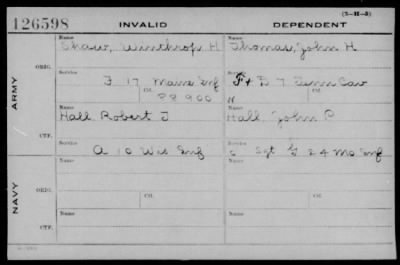 (3-H-3)
126598 INVALID DEPENDENT
Name Name
Shaw, Winthrop H Thomas, John H
ORIG.
Service Service
F 17 Maine Inf F & D 7 Tenn Cav
Ctf. Ctf.
ARMY
Name Name
Hall Robert J Hall John P
CTF.
Service Service
A 10 Wis Inf c Sgt G 24 Mo Inf
Name Name
ORIG.
Service Ctf. Service Ctf.
NAVY
Name Name
CTF.
Service Service